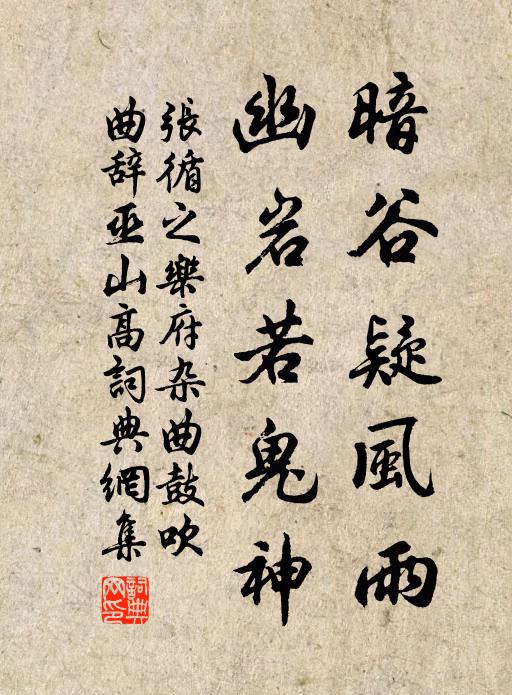 暗谷疑風雨
幽岩若鬼神
張循之樂府杂曲鼓吹
曲辞巫山高詞典網集
詞典